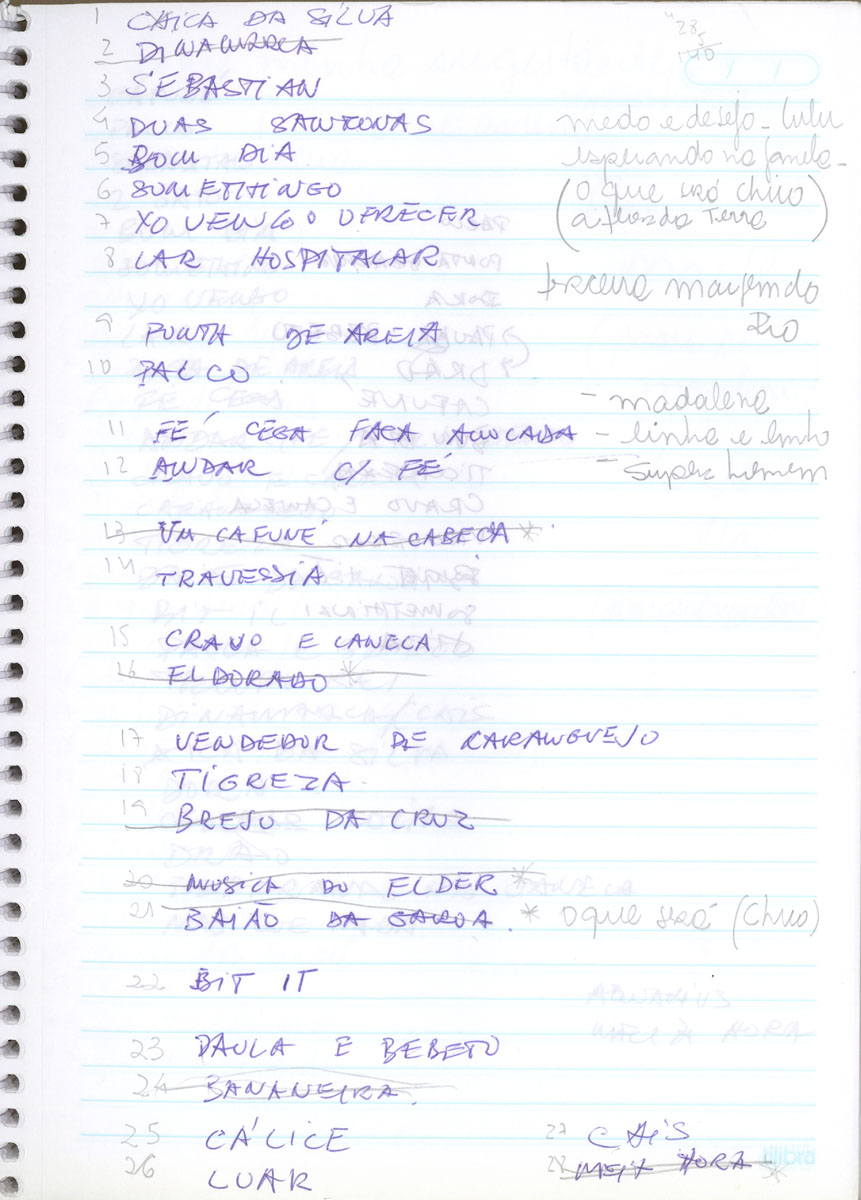 1 CHICA DA SILVA
28
2 DINAMARCA
3 SEBASTIAN
4 DUAS SANFONAS
medo e desejo - Lulu
5 BOM DIA
esperando na janela -
6 SOMETHINGO
(o que será chico
7 YO VENGO OFRECER
a flor da Terra)
8 LAR HOSPITALAR
terceira margem do
Rio
9 PONTA DE AREIA
10 PALCO
- madalena
11 FÉ CEGA FACA AMOLADA - linha e linho
12 ANDAR C/ FÉ - Super homem
13 UM CAFUNÉ NA CABEÇA *
14 TRAVESSIA
15 CRAVO E CANELA
16 ELDORADO *
17 VENDEDOR DE CARANGUEJO
18 TIGREZA
19 BREJO DA CRUZ
20 MUSICA DO ELDER *
21 BAIÃO DA GAROA. * O que será (Chico)
22 BIT IT
23 PAULA E BEBETO
24 BANANEIRA.
25 CÁLICE
27 CAIS
26 LUAR
28 MEIA HORA *
tilibra